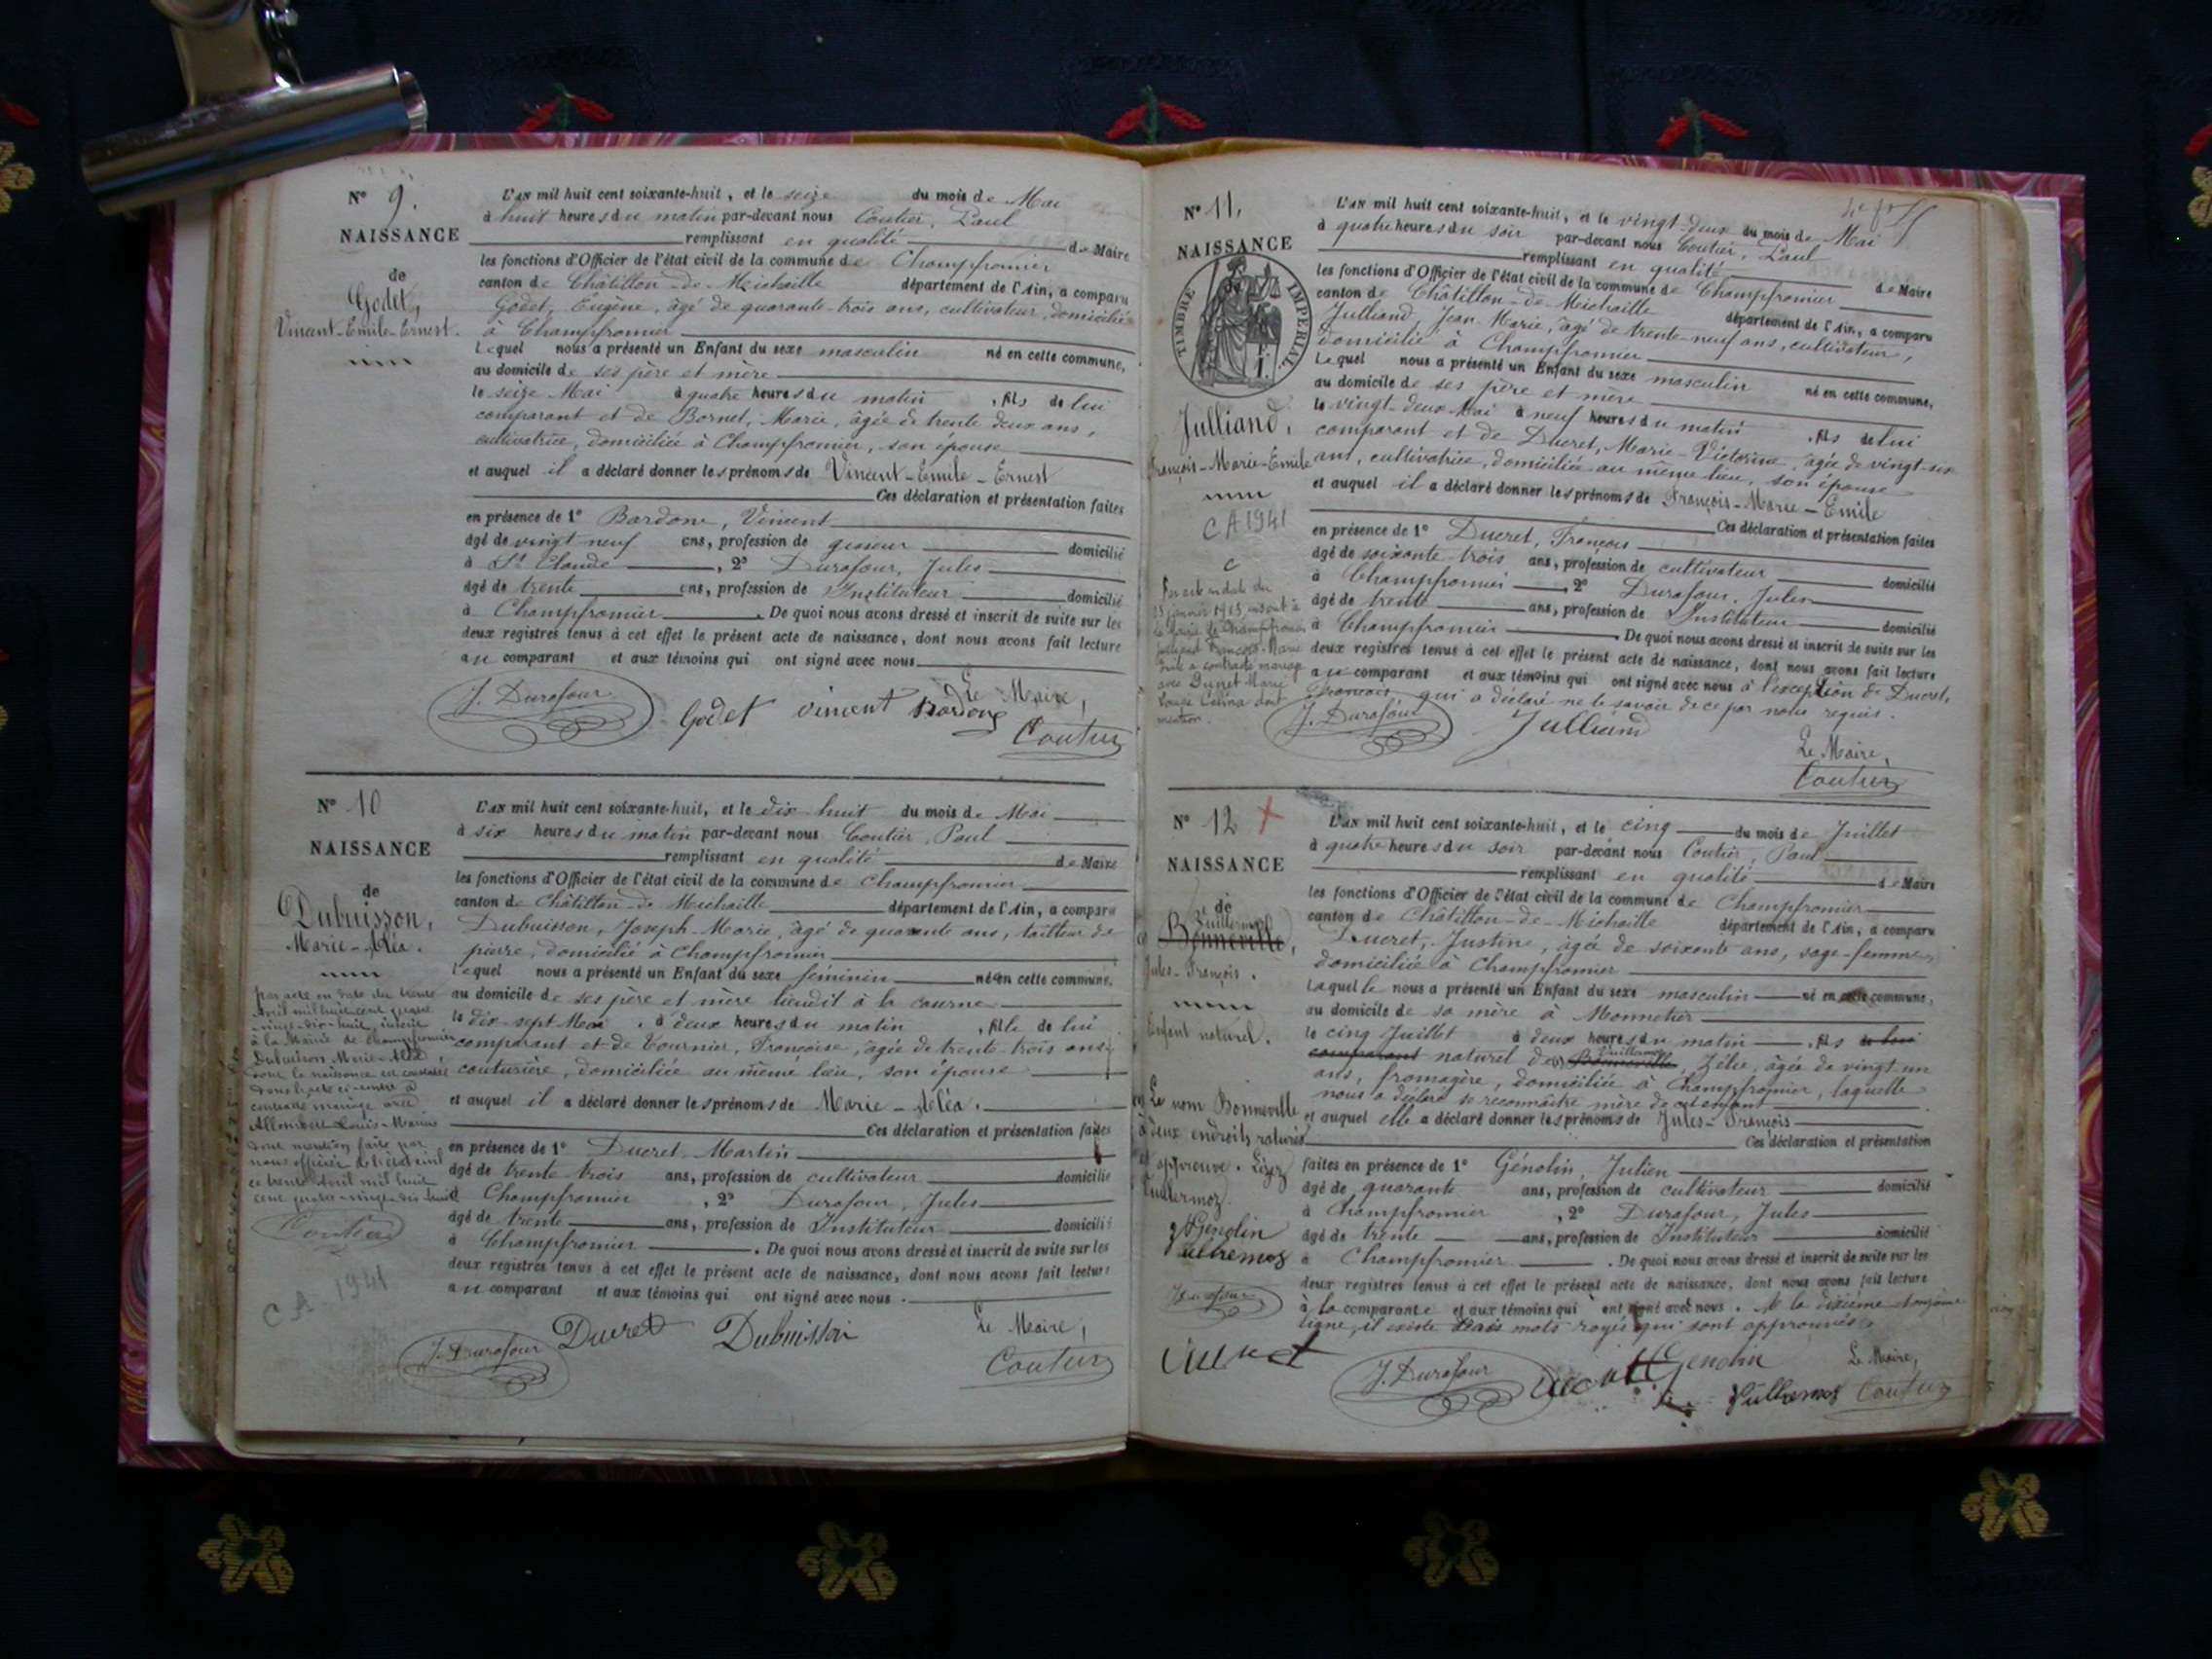 N° 9.
NAISSANCE
de
Godet,
Vincent-Emile-Ernest.
L'AN mil huit cent soixante-huit, et le seize du mois de Mai
à huit heures du matin par-devant nous Coutier, Paul
remplissant en qualité de Maire
les fonctions d'Officier de l'état civil de la commune de Champfromier
canton de Châtillon-de-Michaille département de l'Ain, a comparu
Godet, Eugène, âgé de quarante-trois ans, cultivateur, domicilié
à Champfromier
Lequel nous a présenté un Enfant du sexe masculin né en cette commune,
au domicile de ses père et mère
le seize Mai à quatre heures du matin, fils de lui
comparant et de Bornet, Marie, âgée de trente deux ans,
cultivatrice, domiciliée à Champfromier, son épouse
et auquel il a déclaré donner les prénoms de Vincent-Emile-Ernest
Ces déclaration et présentation faites
en présence de 1° Bardone, Vincent
âgé de vingt neuf ans, profession de domicilié
à St Claude, 2° Durafour, Jules
âgé de trente ans, profession de Instituteur domicilié
à Champfromier. De quoi nous avons dressé et inscrit de suite sur les
deux registres tenus à cet effet le présent acte de naissance, dont nous avons fait lecture
au comparant et aux témoins qui ont signé avec nous
Le Maire,
J. Durafour Godet vincent Bardone Coutier
N° 10
NAISSANCE
de
Dubuisson,
Marie-Aléa.
L'AN mil huit cent soixante-huit, et le dix huit du mois de Mai
à six heures du matin par-devant nous Coutier, Paul
remplissant en qualité de Maire
les fonctions d'Officier de l'état civil de la commune de Champfromier
canton de Châtillon-de-Michaille département de l'Ain, a comparu
Dubuisson, Joseph-Marie, âgé de quarante ans, tailleur de
pierre, domicilié à Champfromier
Lequel nous a présenté un Enfant du sexe féminin née en cette commune,
au domicile de ses père et mère lieudit à la
le dix-sept Mai, à deux heures du matin, fille de lui
comparant et de Tournier, Françoise, âgée de trente-trois ans,
couturière, domiciliée au même lieu, son épouse
et auquel il a déclaré donner les prénoms de Marie-Aléa.
Ces déclaration et présentation faites
en présence de 1° Ducret, Martin
âgé de trente trois ans, profession de cultivateur domicilié
à Champfromier, 2° Durafour, Jules
âgé de trente ans, profession de Instituteur domicilié
à Champfromier. De quoi nous avons dressé et inscrit de suite sur les
deux registres tenus à cet effet le présent acte de naissance, dont nous avons fait lecture
au comparant et aux témoins qui ont signé avec nous.
Le Maire,
J. Durafour Ducret Dubuisson Coutier
par acte en date du trente
Avril mil huit cent quatre
-vingt-dix-huit, inscrit
à la Mairie de Champfromier
Dubuisson Marie-Aléa,
dont la naissance est constatée
dans l'acte ci-contre a
contracté mariage avec
Allombert Louis-Marius
dont mention faite par
nous officier de l'état civil
ce trente Avril mil huit
cent quatre-vingt-dix-huit
Coutier
CA. 1941
N° 11.
NAISSANCE
TIMBRE IMPERIAL
Julliand,
François-Marie-Emile
CA 1941
L'AN mil huit cent soixante-huit, et le vingt-deux du mois de Mai
à quatre heures du soir par-devant nous Coutier, Paul
remplissant en qualité de Maire
les fonctions d'Officier de l'état civil de la commune de Champfromier
canton de Châtillon-de-Michaille département de l'Ain, a comparu
Julliand, Jean-Marie, âgé de trente-neuf ans, cultivateur,
domicilié à Champfromier
Lequel nous a présenté un Enfant du sexe masculin né en cette commune,
au domicile de ses père et mère
le vingt-deux Mai à neuf heures du matin, fils de lui
comparant et de Ducret, Marie-Victorine, âgée de vingt-six
ans, cultivatrice, domiciliée au même lieu, son épouse
et auquel il a déclaré donner les prénoms de François-Marie-Emile
Ces déclaration et présentation faites
en présence de 1° Ducret, François
âgé de soixante trois ans, profession de cultivateur domicilié
à Champfromier, 2° Durafour, Jules
âgé de trente ans, profession de Instituteur domicilié
à Champfromier. De quoi nous avons dressé et inscrit de suite sur les
deux registres tenus à cet effet le présent acte de naissance, dont nous avons fait lecture
au comparant et aux témoins qui ont signé avec nous à l'exception de Ducret,
François, qui a déclaré ne le savoir de ce par nous requis.
J. Durafour Julliand
Le Maire,
Coutier
Par acte en date du
janvier inscrit à
la Mairie de Champfromier
Julliand François-Marie
Emile a contracté mariage
avec Ducret Marie
Louise Célina dont
mention.
N° 12
NAISSANCE
de
Vuillermoz
Bonneville,
Jules-François.
Enfant naturel.
L'AN mil huit cent soixante-huit, et le cinq du mois de Juillet
à quatre heures du soir par-devant nous Coutier, Paul
remplissant en qualité de Maire
les fonctions d'Officier de l'état civil de la commune de Champfromier
canton de Châtillon-de-Michaille département de l'Ain, a comparu
Ducret, Justine, âgée de soixante ans, sage-femme,
domiciliée à Champfromier
Laquelle nous a présenté un Enfant du sexe masculin né en cette commune,
au domicile de sa mère à Monnetier
le cinq Juillet à deux heures du matin, fils de lui
comparant naturel de Bonneville Vuillermoz, Zélie, âgée de vingt un
ans, fromagère, domiciliée à Champfromier, laquelle
nous a déclaré se reconnaître mère de cet enfant
et auquel elle a déclaré donner les prénoms de Jules-François
Ces déclaration et présentation
faites en présence de 1° Génolin, Julien
âgé de quarante ans, profession de cultivateur domicilié
à Champfromier, 2° Durafour, Jules
âgé de trente ans, profession de Instituteur domicilié
à Champfromier. De quoi nous avons dressé et inscrit de suite sur les
deux registres tenus à cet effet le présent acte de naissance, dont nous avons fait lecture
à la comparante et aux témoins qui ont signé avec nous. A la dixième
ligne, il existe trois mots rayés qui sont approuvés.
Le Maire,
J. Durafour Ducret Genolin Vuillermoz Coutier
Le nom Bonneville
à deux endroits raturés
approuvé. Lizez
Vuillermoz.
Genolin
Durafour
Ducret